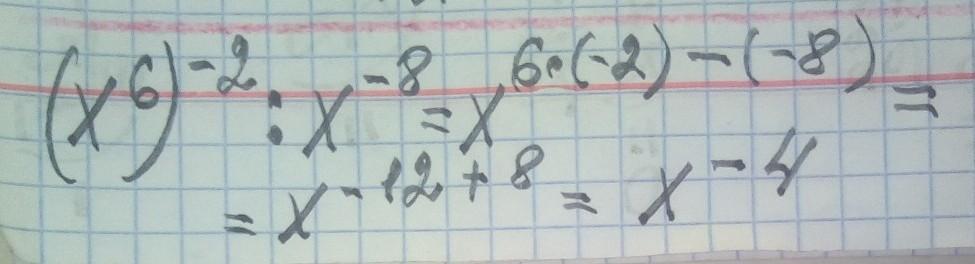 (x⁶)⁻² : x⁻⁸ = x⁶·⁽⁻²⁾⁻⁽⁻⁸⁾ =
= x⁻¹²⁺⁸ = x⁻⁴